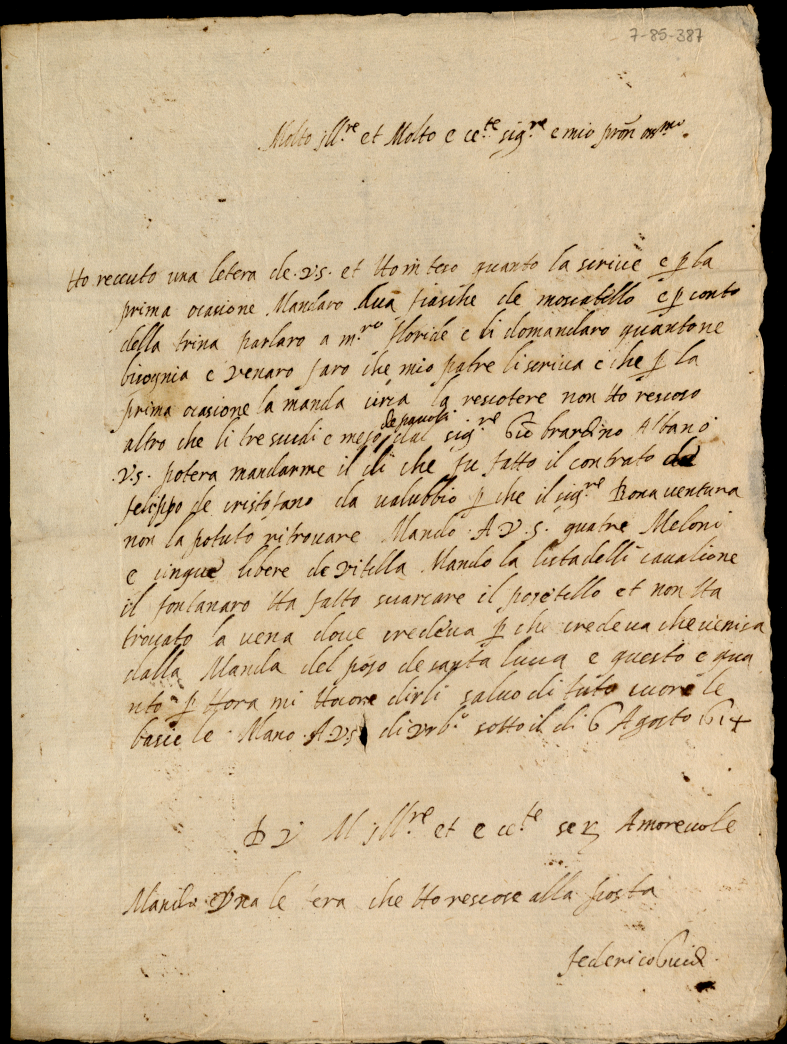 7-85-387
Molto Ill.re et Molto e cc.te sig.re e mio pron oss.mo
Ho receuto una letera de .V.S. et Ho inteso quanto la scrive e p la
prima ocasione Mandaro dua fiasche de moscatello e p conto
della trina parlaro a m.ro floride e li domandaro quantone
bisognia e venaro faro che mio patre li scriva e che p la
prima ocasione la manda circa la rescotere non Ho rescoso
altro che li tre scudi e mezo de pauoli dal sig.re Gio brardino Albano
.V.S. potera mandarme il di che fu fatto il contrato de
felippo de cristofano da valubbio p che il sig.re Bonaventura
non la potuto ritrovare Mando A V.S. quatre Meloni
e cinque libere de vitella Mando la lista delli cavalione
il fontanaro Ha fatto scarcare il pozetello et non Ha
trovato la vena dove credeva p che credeva che veniva
dalla Manda del pozo de santa lucia e questo e qua
nto p Hora mi Hocore dirli salvo di tuto cuore le
bacie le Mano A V.S. di Urb.o sotto il di 6 Agosto 1614
D V M Ill.re et e cc.te ser Amorevole
Mando Una letera che Ho rescose alla posta
federico